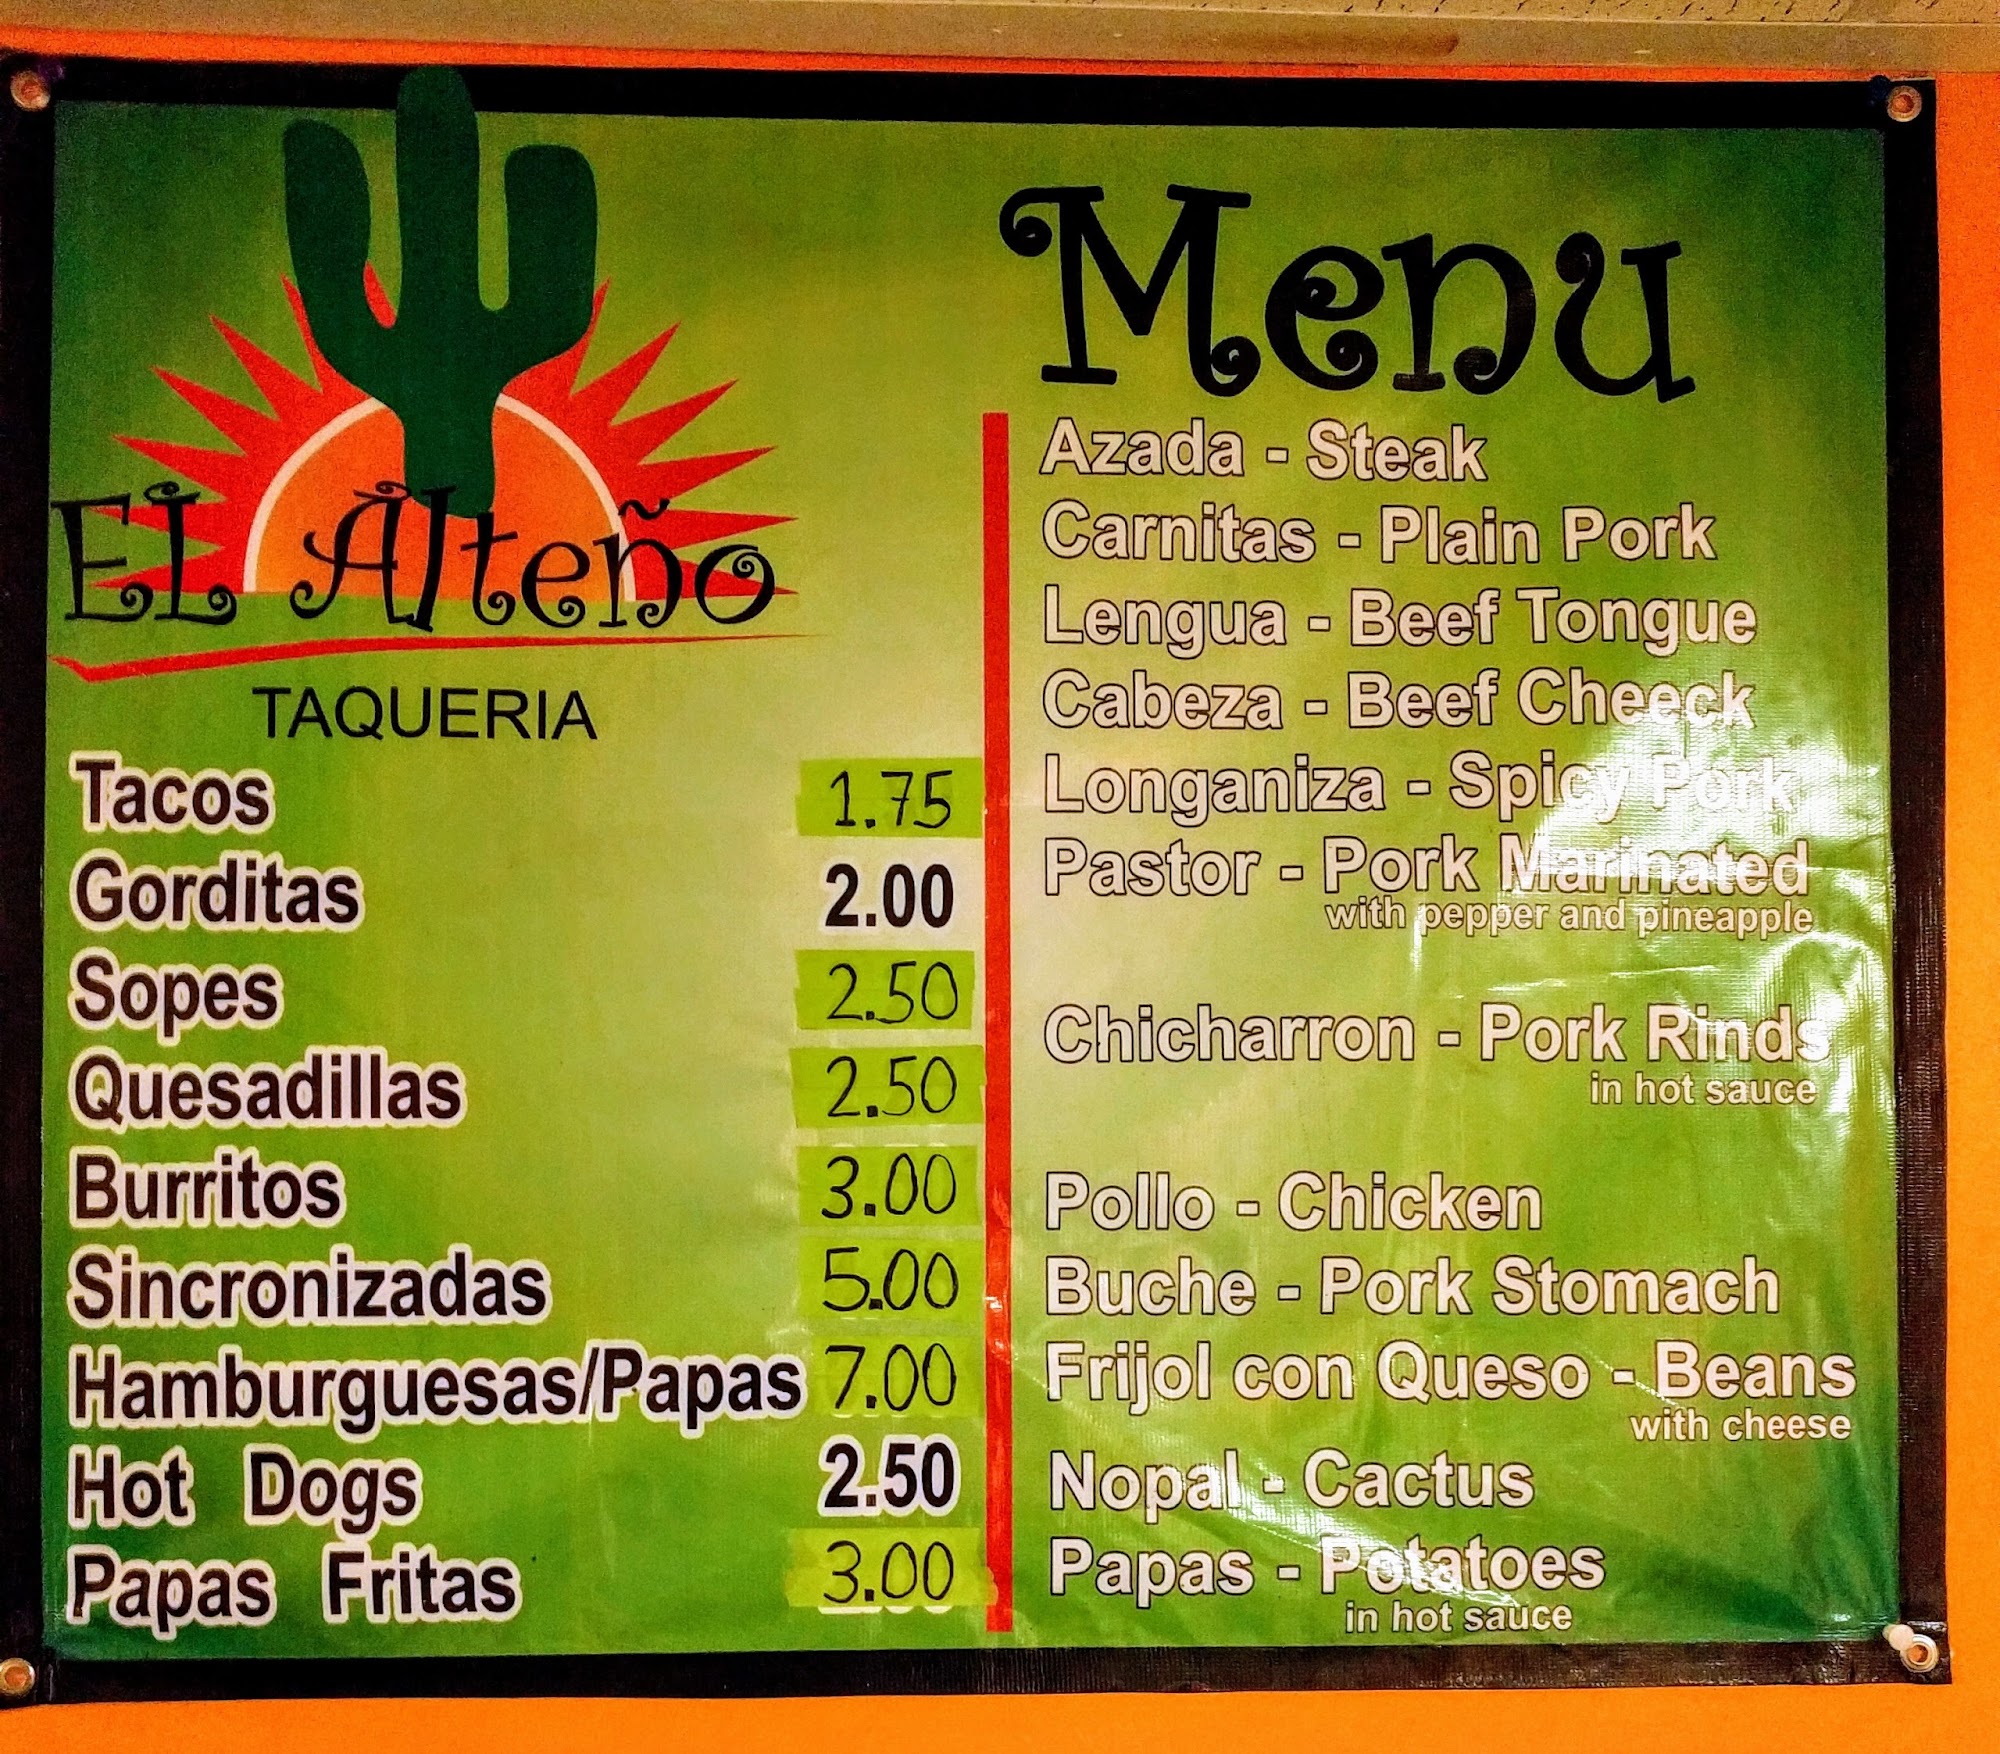 EL Alteño
TAQUERIA
Tacos 1.75
Gorditas 2.00
Sopes 2.50
Quesadillas 2.50
Burritos 3.00
Sincronizadas 5.00
Hamburguesas/Papas 7.00
Hot Dogs 2.50
Papas Fritas 3.00
Menu
Azada - Steak
Carnitas - Plain Pork
Lengua - Beef Tongue
Cabeza - Beef Cheeck
Longaniza - Spicy Pork
Pastor - Pork Marinated
with pepper and pineapple
Chicharron - Pork Rinds
in hot sauce
Pollo - Chicken
Buche - Pork Stomach
Frijol con Queso - Beans
with cheese
Nopal - Cactus
Papas - Potatoes
in hot sauce